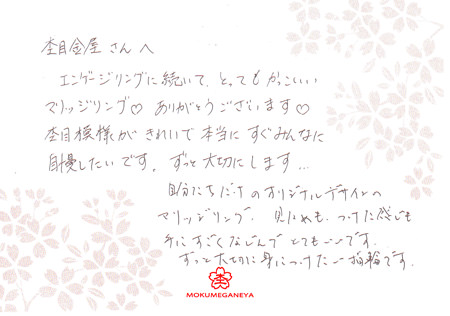 杢目金屋さんへ
エンゲージリングに続いて、とってもかっこいい
マリッジリング♡ ありがとうございます♡
杢目模様がきれいで本当にすぐみんなに
自慢したいです。ずっと大切にします…
自分たちだけのオリジナルデザインの
マリッジリング。見ためも、つけた感じも
手にすごくなじんでとてもいいです。
ずっと大切に身につけたい指輪です。
杢
MOKUMEGANEYA